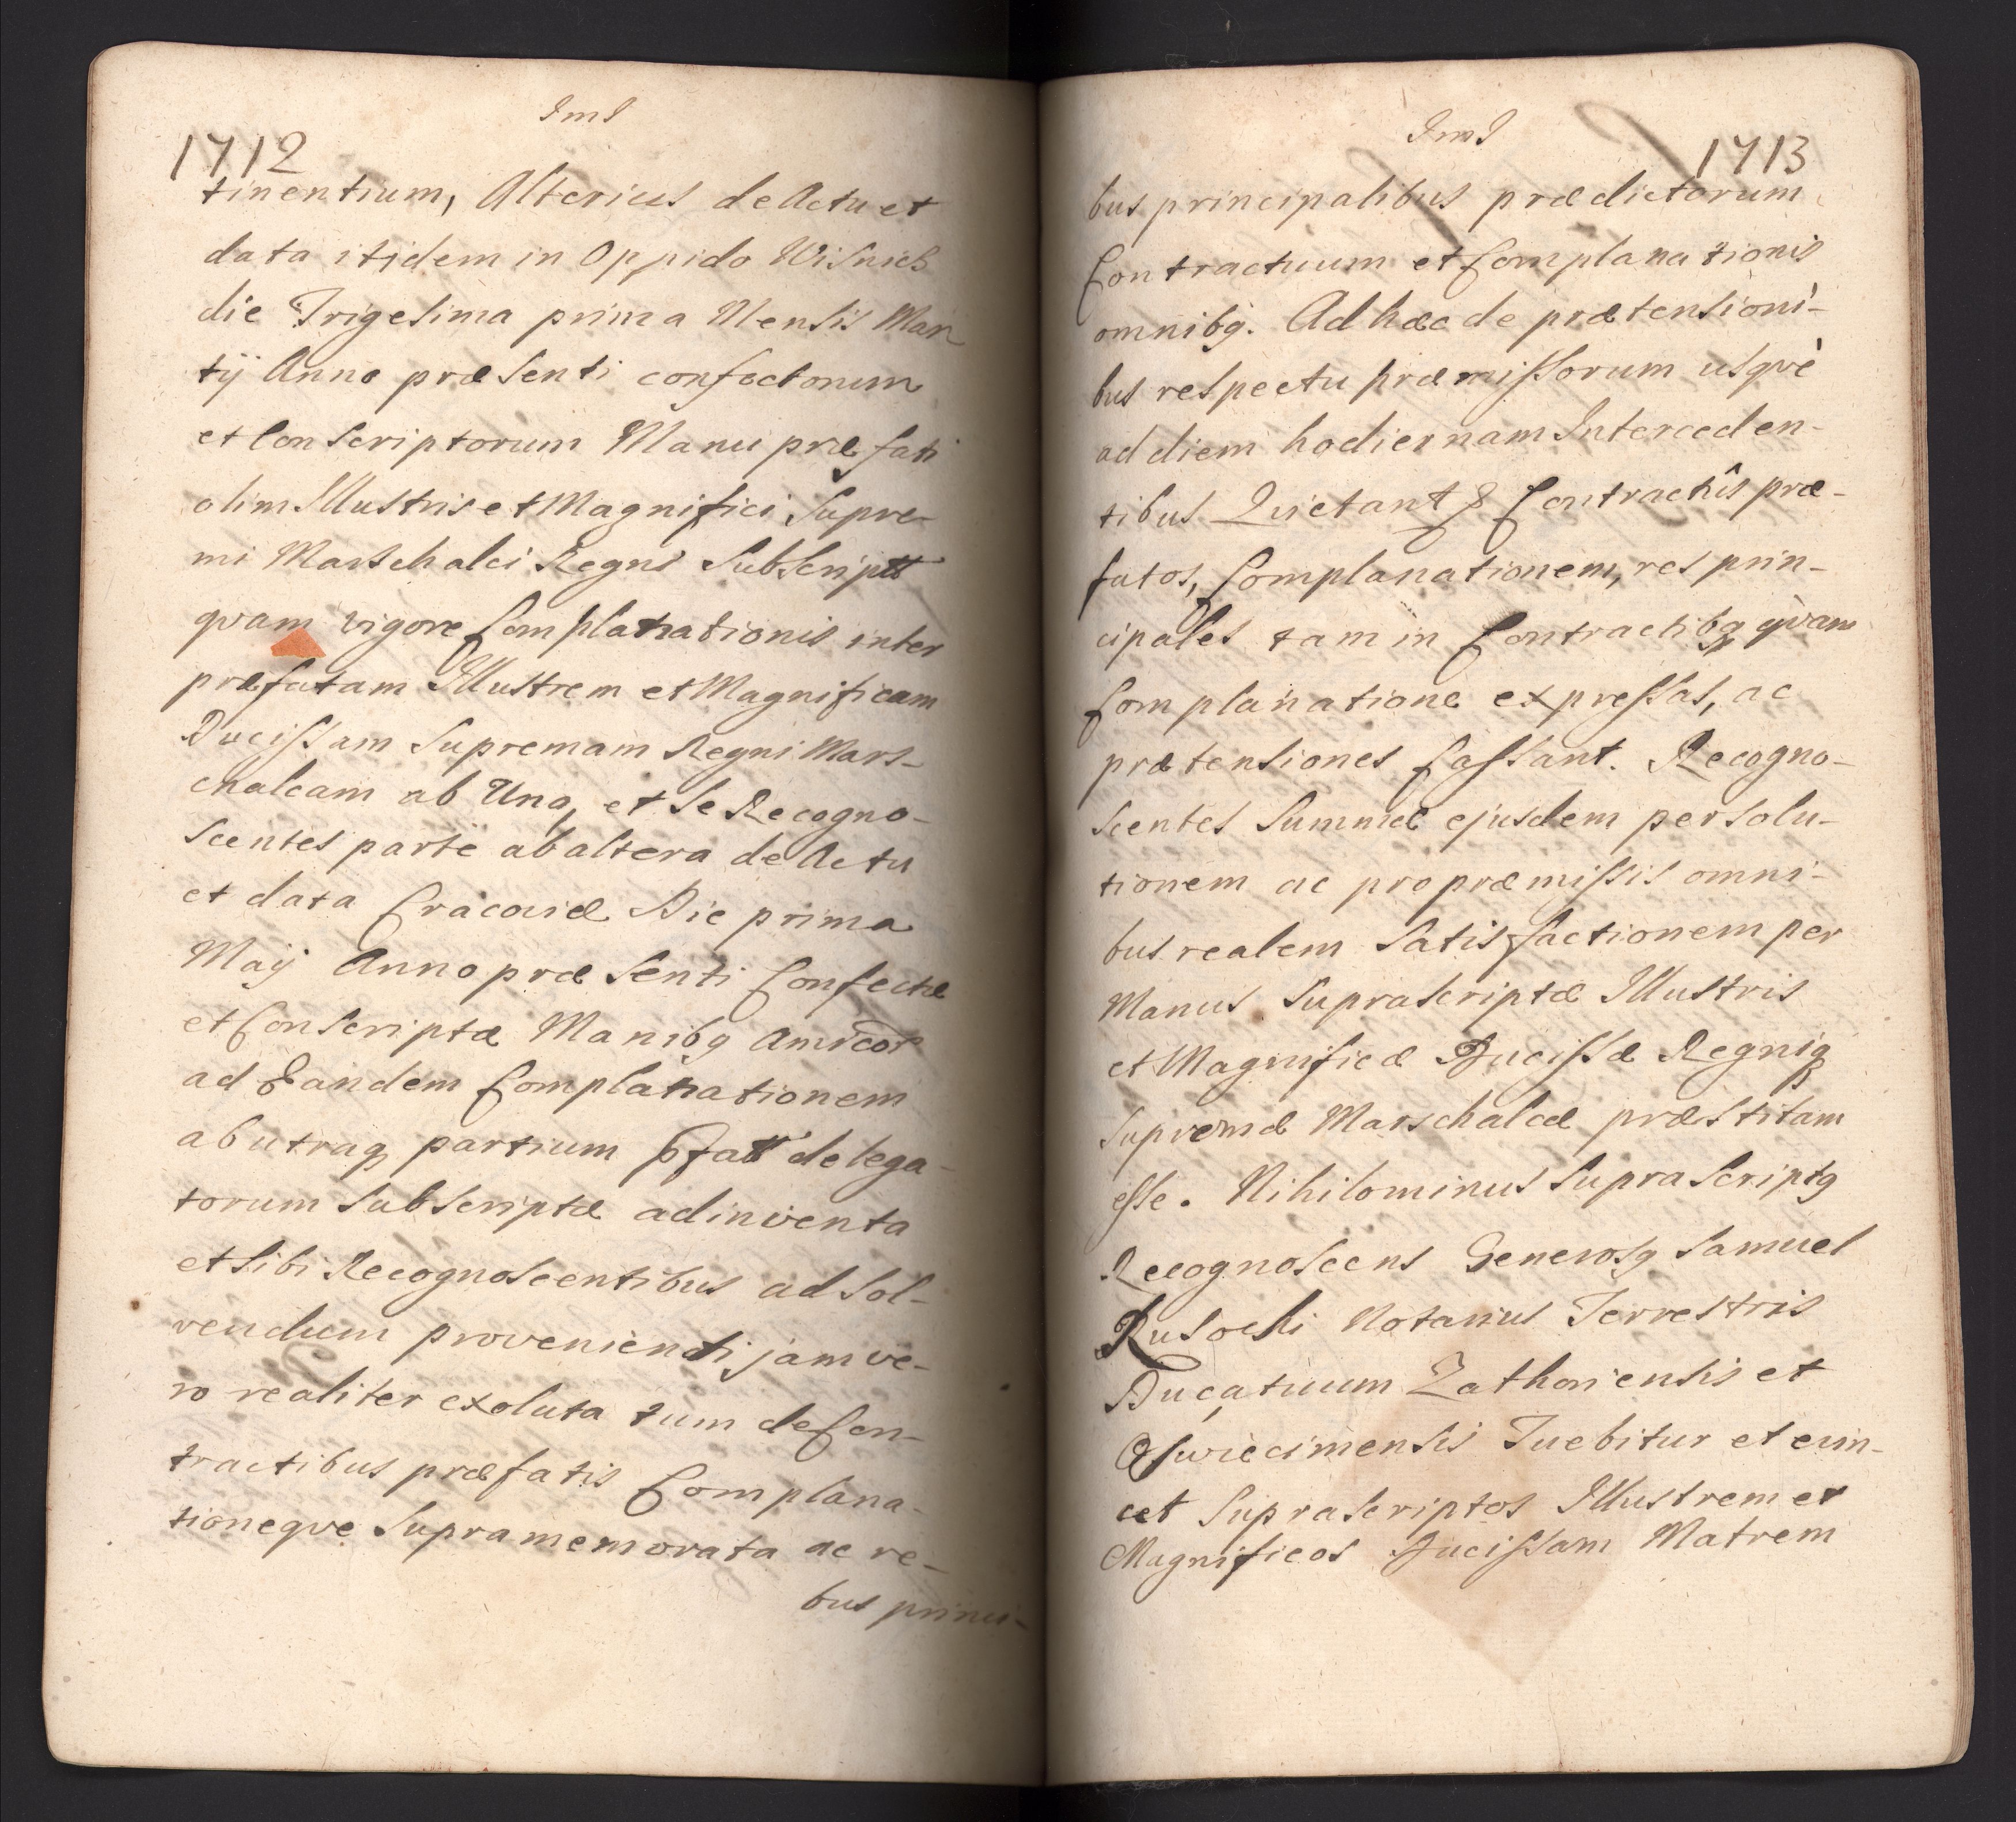 JmJ
1712
tinentium, Alterius de Actu et
data itidem in Oppido Wisnich
die Trigesima prima Mensis Mar
tij Anno præsenti confectorum
et Conscriptorum Manu præfati
olim Illustris et Magnifici Supre-
mi Marschalci Regni Subscriptt
qvam vigore Complanationis inter
præfatam Illustrem et Magnificam
Ducissam Supremam Regni Mars-
chalcam ab Una, et se Recogno-
scentes parte ab altera de Actu
et data Cracoviæ Die prima
Maij Anno præsenti Confectæ
et Conscriptæ Manibq Amicor
ad Eandem Complanationem
ab utraq partium pfatt delega-
torum Subscriptæ adinventa
et sibi Recognoscentibus ad Sol-
vendum provenienti jam ve-
ro realiter exoluta tum de Con-
tractibus præfatis Complana-
tioneqve Supramemorata ac re-
bus princi-
JmJ
1713
bus principalibus prædictorum
Contractuum et Complanationis
omnibq. Ad hæc de prætensioni-
bus respectu præmissorum usqvè
ad diem hodiernam Interceden-
tibus Quietant & Contractûs præ-
fatos, Complanationem, res prin-
cipales tam in Contractibq qvam
Complanatione expressas, ac
prætensiones Cassant. Recogno-
scentes Summæ ejusdem persolu-
tionem ac pro præmissis omni-
bus realem Satisfactionem per
Manus Suprascriptæ Illustris
et Magnificæ Ducissæ Regniq
Supremæ Marschalcæ præstitam
esse. Nihilominus Suprascriptq
Recognoscens Generosq Samuel
Rusocki Notarius Terrestris
Ducatuum Zathoriensis et
Oswiecimensis Tuebitur et evin-
cet Suprascriptos Illustrem et
Magnificos Ducissam Matrem